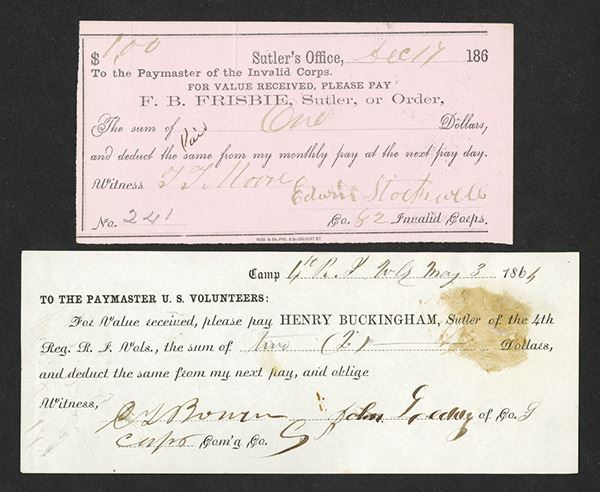 $1,00 Sutler's Office, Dec 17 186
To the Paymaster of the Invalid Corps.
FOR VALUE RECEIVED, PLEASE PAY
F. B. FRISBIE, Sutler, or Order,
The sum of One Dollars,
Paid
and deduct the same from my monthly pay at the next pay day.
Witness T T Moore
Edwin Stockwell
No. 241 Co. 82 Invalid Corps.
Camp 4th R. I Vols May 3 1864
TO THE PAYMASTER U. S. VOLUNTEERS:
For Value received, please pay HENRY BUCKINGHAM, Sutler of the 4th
Reg. R. I. Vols., the sum of two (2) Dollars,
and deduct the same from my next pay, and oblige
Witness, Bowen John of Co. G
Capt Com'g Co. G